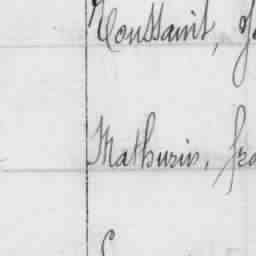 Toussaint,
Mathurin, fra